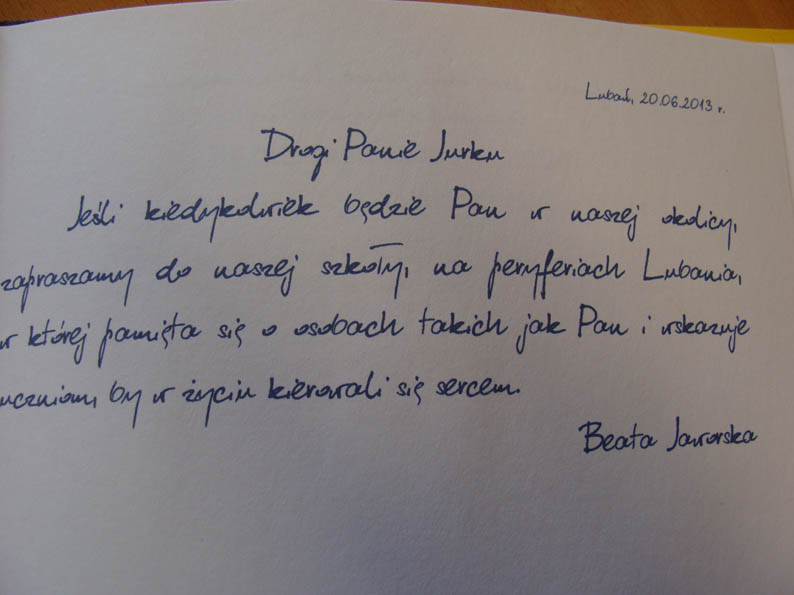 Lubań, 20.06.2013 r.
Drogi Panie Jurku
Jeśli kiedykolwiek będzie Pan w naszej okolicy,
zapraszamy do naszej szkoły, na peryferiach Lubania,
w której pamięta się o osobach takich jak Pan i wskazuje
uczniom, by w życiu kierowali się sercem.
Beata Jaworska